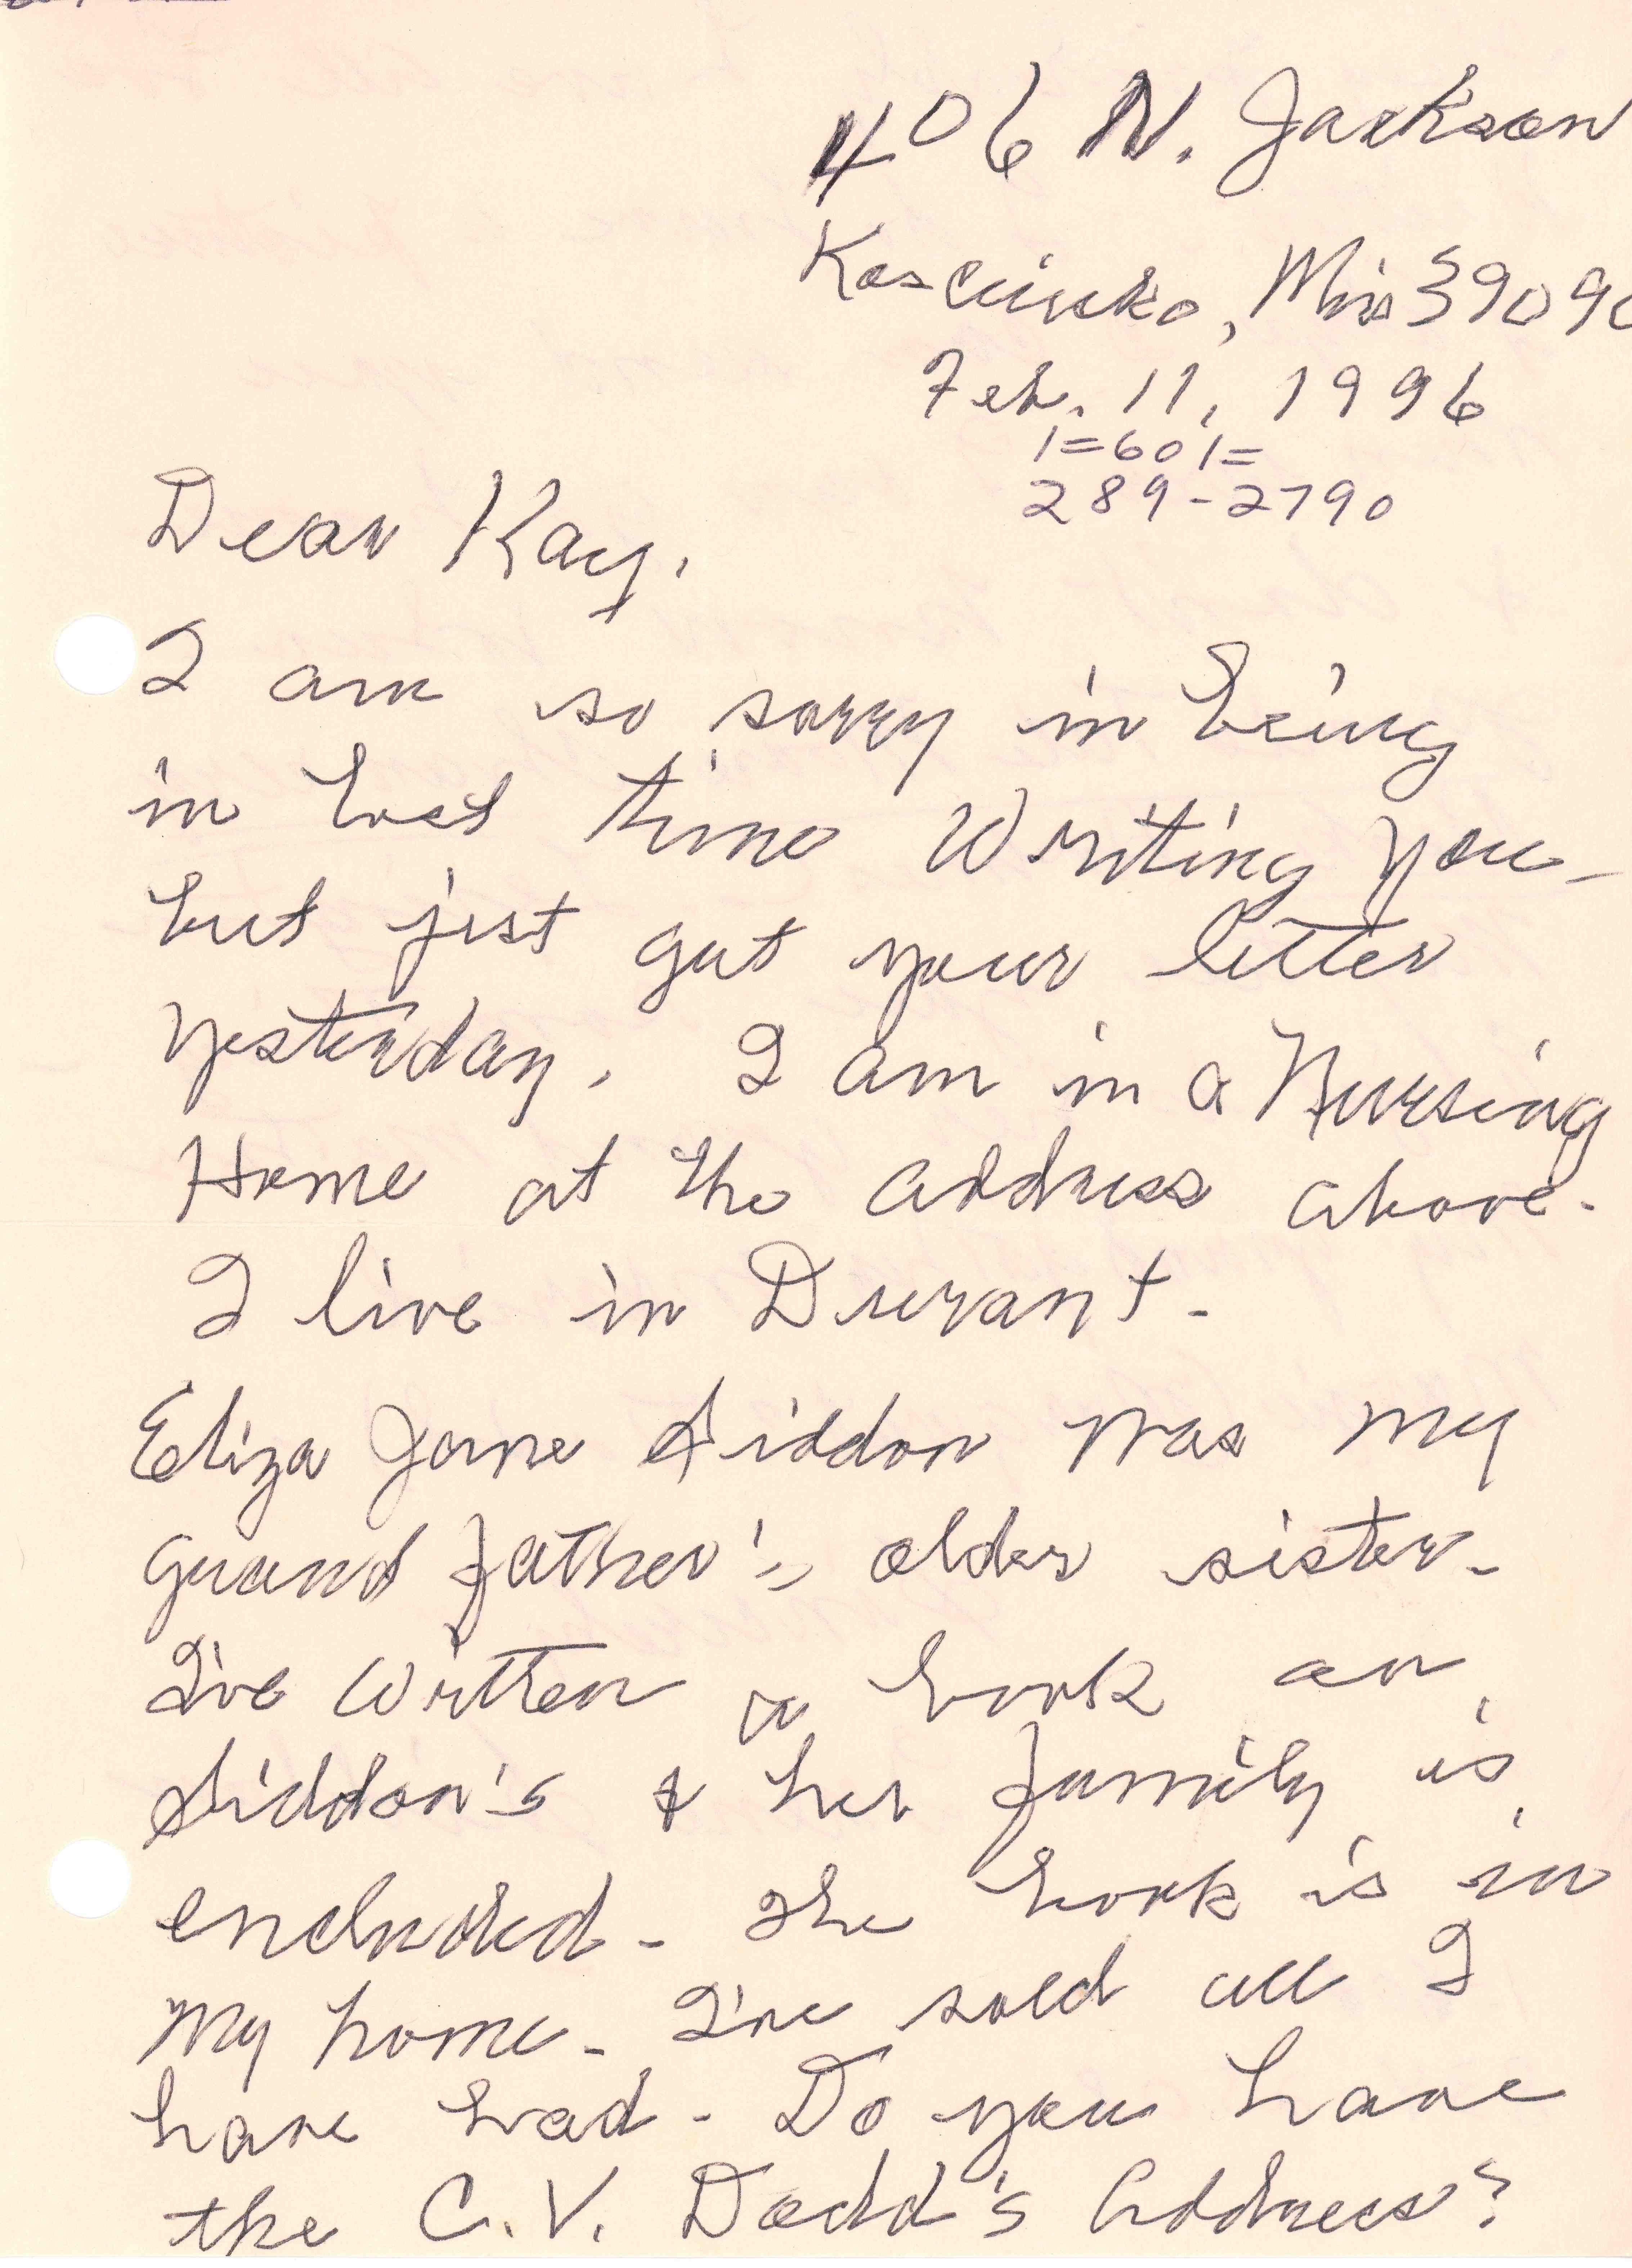 406 N. Jackson
Kosciusko, Miss 3909
Feb. 11, 1996
1=601=
289-2790
Dear Kay,
I am so sorry in being
in lost time writing you -
but just got your letter
yesterday. I am in a Nursing
Home at the address above.
I live in Durant -
Eliza Jane Siddon was my
grand father's older sister -
I've written a book on
Siddon's & her family is
encluded - The book is in
my home - I've sold all I
have had - Do you have
the C. V. Dodd's Address?